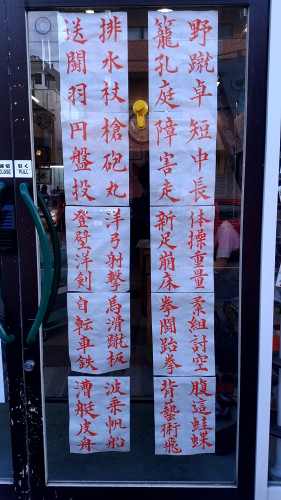 野蹴卓
籠孔庭
短中長
障害走
体操重量
新足崩床
柔組討空
拳闘跆拳
腹這蛙蝶
背藝術飛
排水杖
送闘羽
槍砲丸
円盤投
洋弓射撃
登壁洋剣
馬滑蹴板
自転車鉄
波乗帆船
漕艇皮舟
CLOSE
引く
PULL